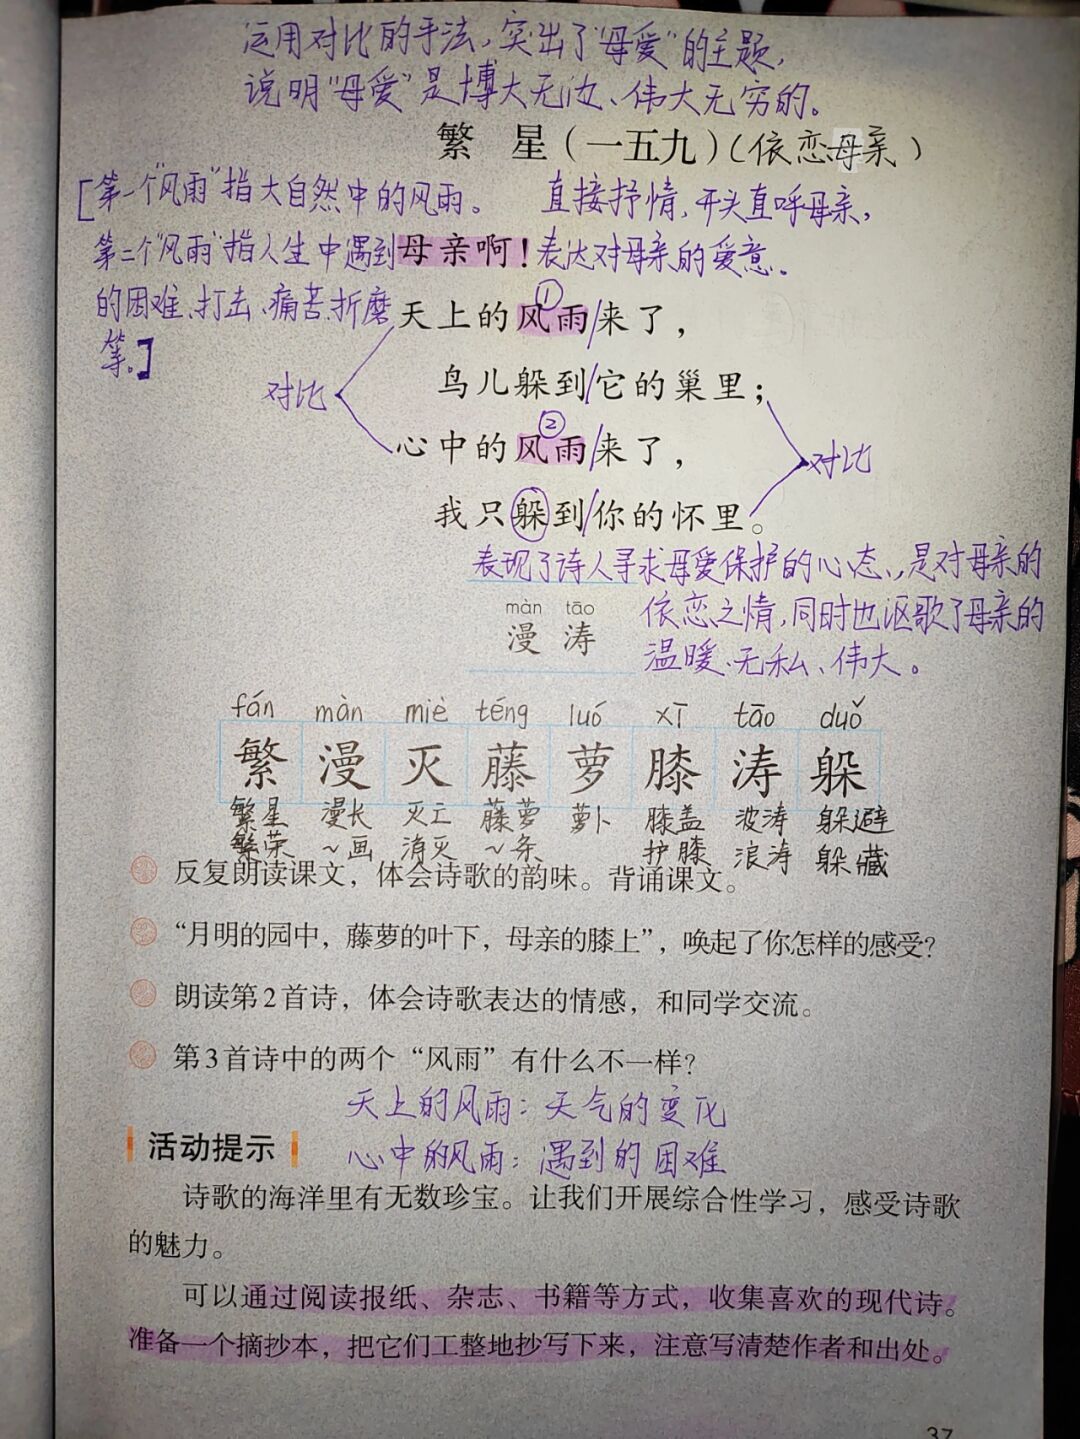 运用对比的手法,突出了“母爱”的主题,
说明“母爱”是博大无边、伟大无穷的。
繁 星(一五九)(依恋母亲)
[第一个“风雨”指大自然中的风雨。
直接抒情,开头直呼母亲,
第二个“风雨”指人生中遇到
母亲啊!
表达对母亲的爱意。
的困难、打击、痛苦、折磨
等。]
①
天上的风雨/来了,
鸟儿躲到/它的巢里;
对比
②
心中的风雨/来了,
对比
我只躲到/你的怀里。
表现了诗人寻求母爱保护的心态,,是对母亲的
依恋之情,同时也讴歌了母亲的
温暖、无私、伟大。
màn tāo
漫 涛
fán màn miè téng luó xī tāo duǒ
繁 漫 灭 藤 萝 膝 涛 躲
繁星 漫长 灭亡 藤萝 萝卜 膝盖 波涛 躲避
繁荣 ~画 消灭 ~条 护膝 浪涛 躲藏
反复朗读课文,体会诗歌的韵味。背诵课文。
“月明的园中,藤萝的叶下,母亲的膝上”,唤起了你怎样的感受?
朗读第2首诗,体会诗歌表达的情感,和同学交流。
第3首诗中的两个“风雨”有什么不一样?
天上的风雨:天气的变化
心中的风雨:遇到的困难
活动提示
诗歌的海洋里有无数珍宝。让我们开展综合性学习,感受诗歌
的魅力。
可以通过阅读报纸、杂志、书籍等方式,收集喜欢的现代诗。
准备一个摘抄本,把它们工整地抄写下来,注意写清楚作者和出处。
37